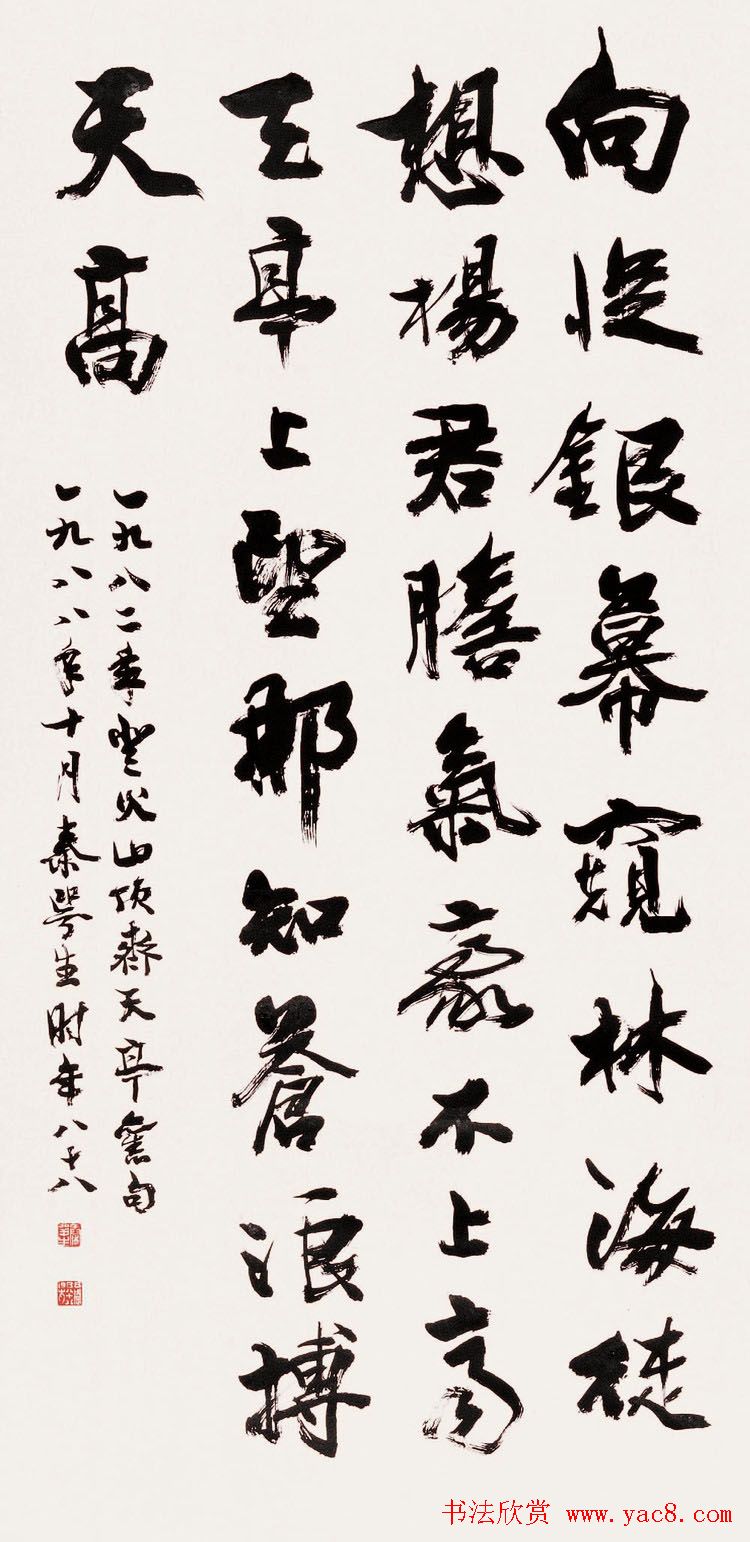 向從銀幕窺林海徒
想楊君膽氣豪不上齊
天亭上望那知蒼浪搏
天高
一九八二年登火山頂齊天亭舊句
一九八八年十月秦咢生時年八十八
书法欣赏 www.yac8.com